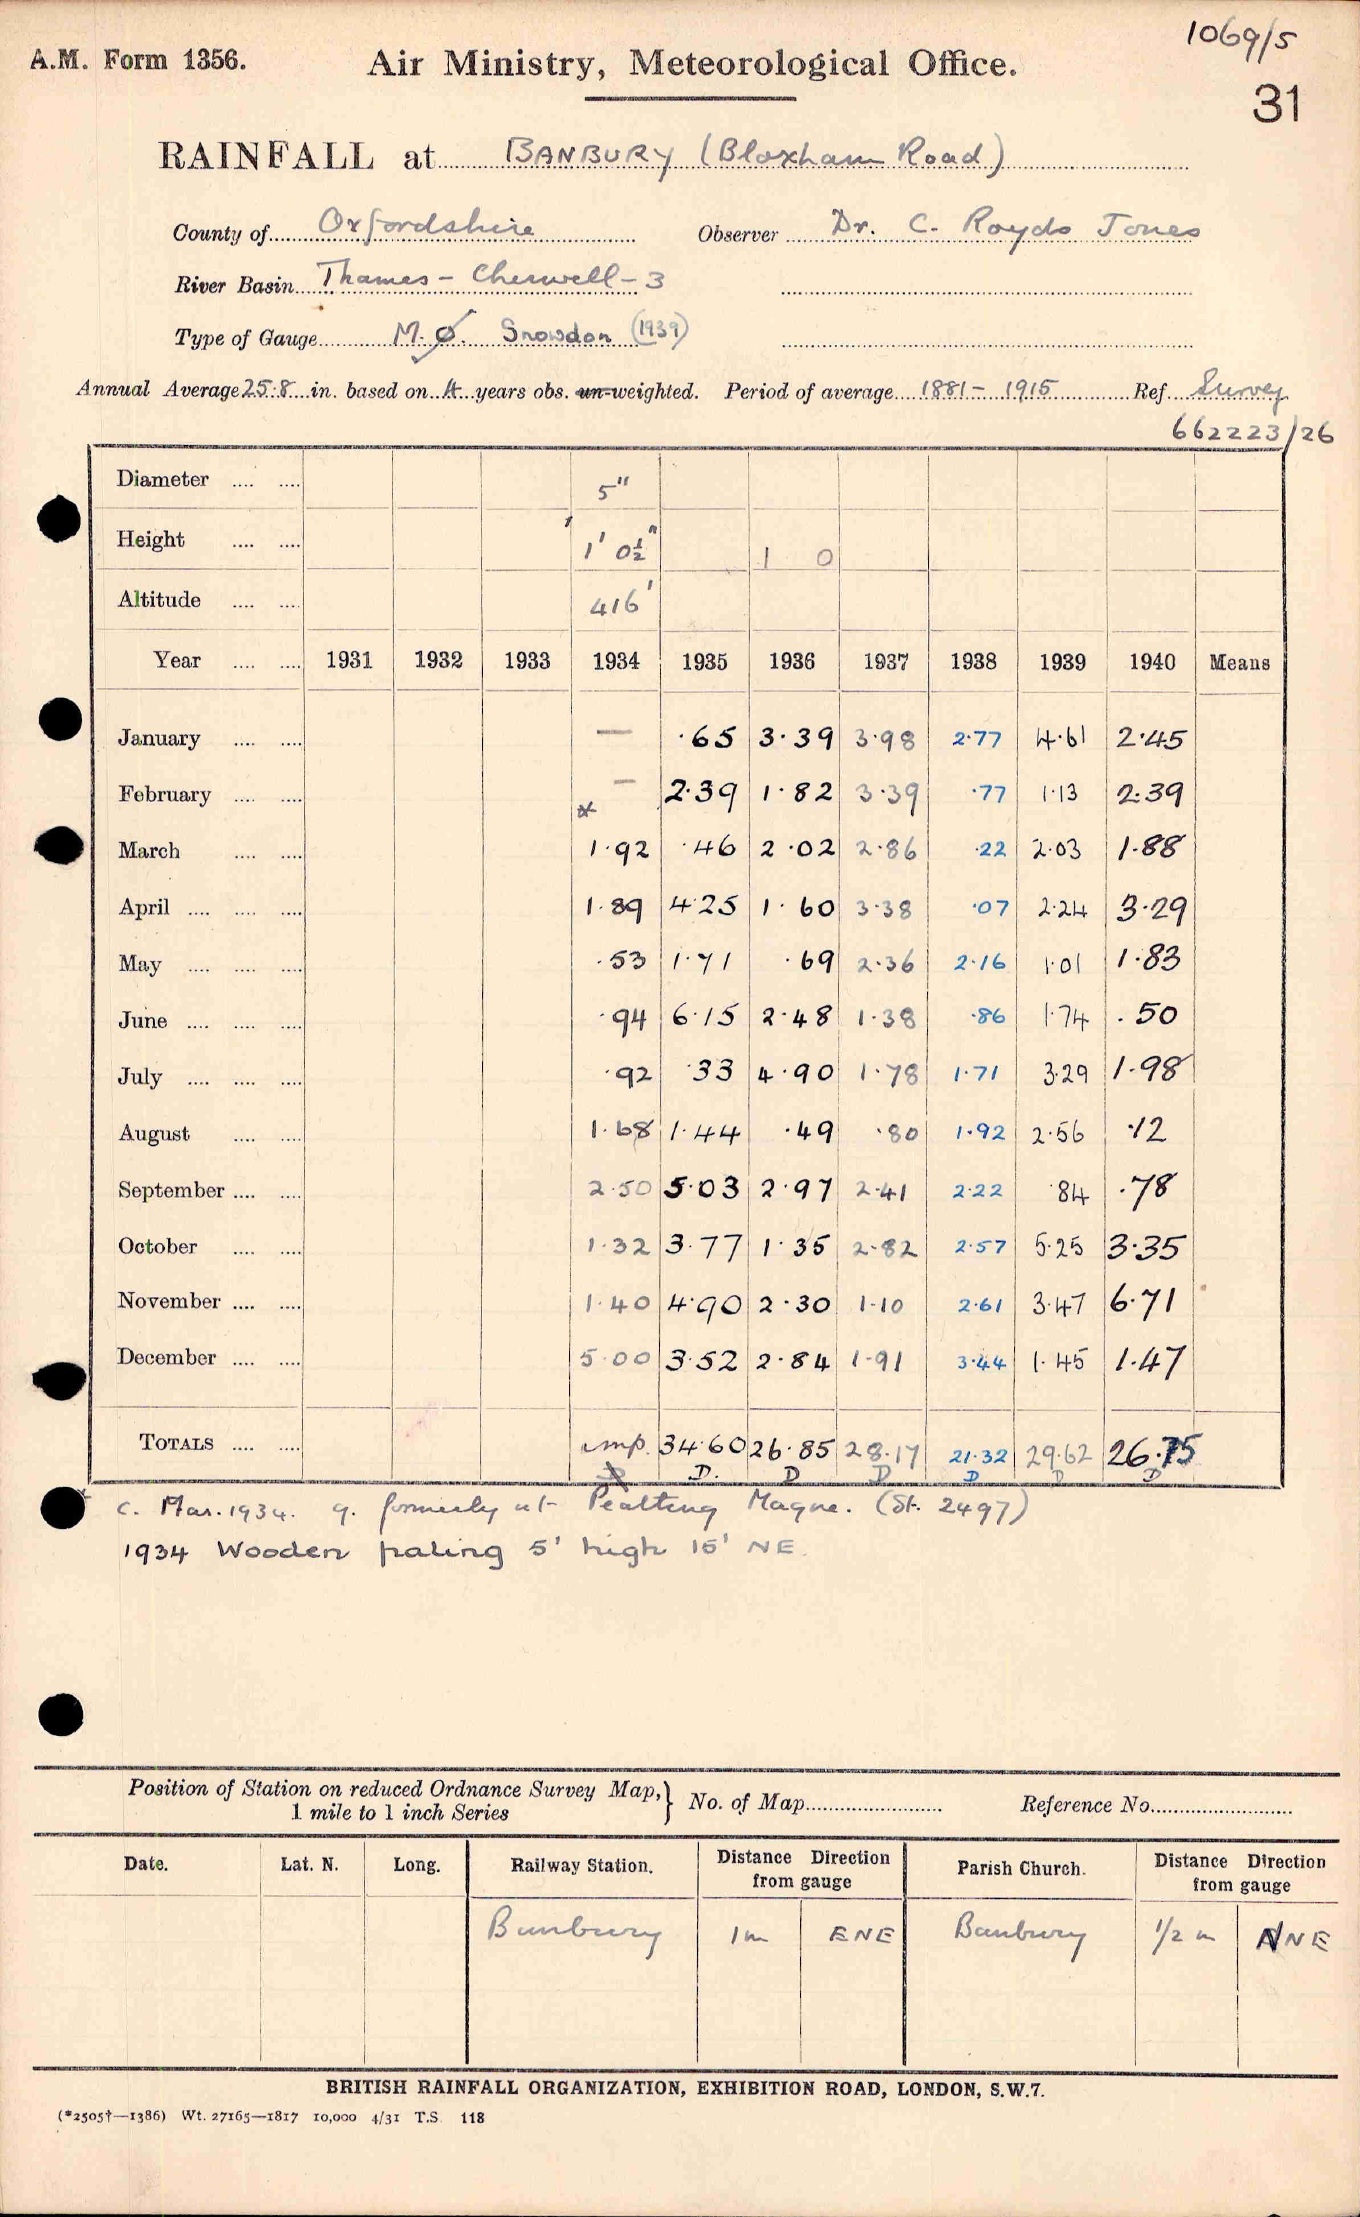 1069/5
A.M. Form 1356. Air Ministry, Meteorological Office.
31
RAINFALL at BANBURY (Bloxham Road)
County of Oxfordshire Observer Dr. C. Royds Jones
River Basin Thames - Cherwell - 3
Type of Gauge M.O. Snowdon (1939)
Annual Average 25.8 in. based on 4 years obs. un-weighted. Period of average 1881 - 1915 Ref. Survey
662223/26
Diameter .... .... 5"
Height .... .... 1' 0½" 1 0
Altitude .... .... 416'
Year .... .... 1931 1932 1933 1934 1935 1936 1937 1938 1939 1940 Means
January .... .... — .65 3.39 3.98 2.77 4.61 2.45
February .... .... — 2.39 1.82 3.39 .77 1.13 2.39
March .... .... * 1.92 .46 2.02 2.86 .22 2.03 1.88
April .... .... .... 1.89 4.25 1.60 3.38 .07 2.24 3.29
May .... .... .... .53 1.71 .69 2.36 2.16 1.01 1.83
June .... .... .... .94 6.15 2.48 1.38 .86 1.74 .50
July .... .... .... .92 .33 4.90 1.78 1.71 3.29 1.98
August .... .... 1.68 1.44 .49 .80 1.92 2.56 .12
September .... .... 2.50 5.03 2.97 2.41 2.22 .84 .78
October .... .... 1.32 3.77 1.35 2.82 2.57 5.25 3.35
November .... .... 1.40 4.90 2.30 1.10 2.61 3.47 6.71
December .... .... 5.00 3.52 2.84 1.91 3.44 1.45 1.47
TOTALS .... .... imp. 34.60 26.85 28.17 21.32 29.62 26.75
D D. D D D D D
* c. Mar. 1934. g. formerly at Peatling Magna. (St. 2497)
1934 Wooden paling 5' high 15' NE.
Position of Station on reduced Ordnance Survey Map, 1 mile to 1 inch Series } No. of Map Reference No.
Date. Lat. N. Long. Railway Station. Distance Direction from gauge Parish Church. Distance Direction from gauge
Banbury 1m ENE Banbury 1/2 m NNE
BRITISH RAINFALL ORGANIZATION, EXHIBITION ROAD, LONDON, S.W.7.
(*2505†—1386) Wt. 27165—1817 10,000 4/31 T.S. 118